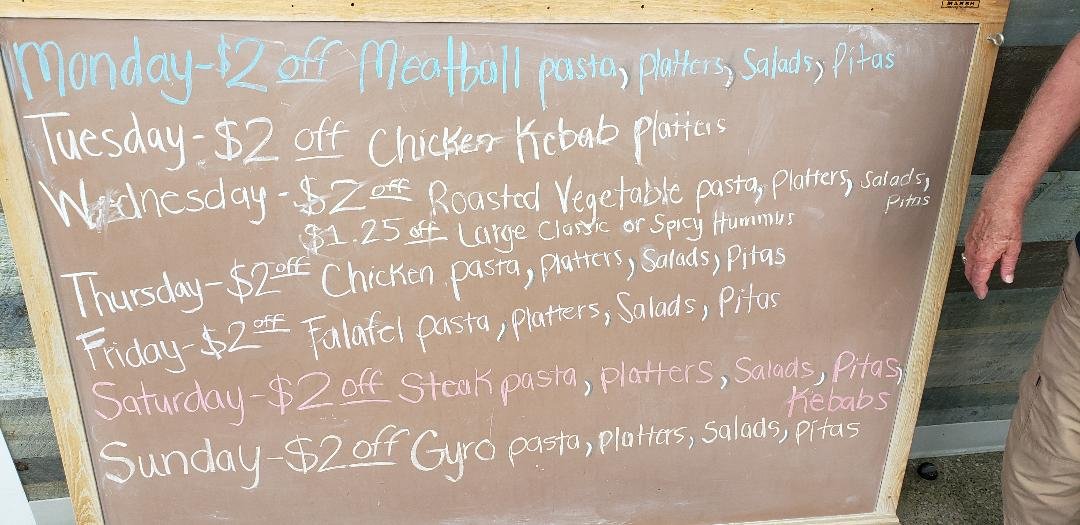 MARSH
Monday-$2 off Meatball pasta, platters, Salads, Pitas
Tuesday-$2 off Chicken Kebab Platters
Wednesday-$2 off Roasted Vegetable pasta, Platters, Salads,
Pitas
$1.25 off Large Classic or Spicy Hummus
Thursday-$2 off Chicken pasta, platters, Salads, Pitas
Friday-$2 off Falafel pasta, platters, Salads, Pitas
Saturday-$2 off Steak pasta, platters, Salads, Pitas,
Kebabs
Sunday-$2 off Gyro pasta, platters, salads, pitas